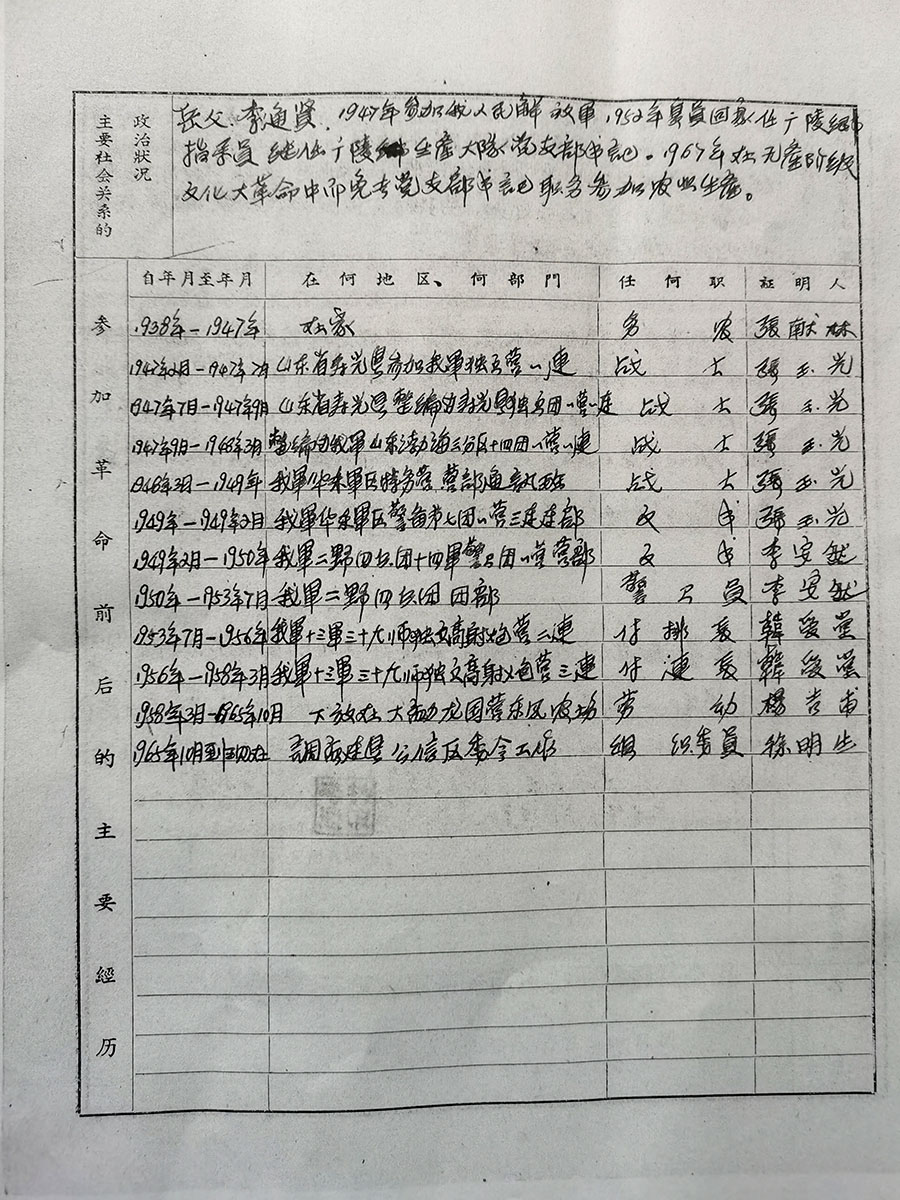 主要社会关系的
政治狀况
岳父.李通贤.1947年参加我人民解放軍1952年复員回家任广陵
指导員 继任广陵 生産大隊党支部书記。1967年在无産阶级
文化大革命中而免去党支部书記职务参加农业生産。
参加革命前后的主要經历
自年月至年月 在何地区、何部門 任何职 証明人
1938年-1947年 在家 务农 張献林
1947年2月-1947年7月 山东省寿光县参加我軍独立营一連 战士 張玉光
1947年7月-1947年9月 山东省寿光县整编为寿光县独立团一营一连 战士 張玉光
1947年9月-1948年3月 整编为我軍山东渤海三分区十四团一营一連 战士 張玉光
1948年3月-1949年 我軍华东軍区特务营 营部通訊班 战士 張玉光
1949年-1949年2月 我軍华东軍区警备第七团一营三連連部 文书 張玉光
1949年2月-1950年 我軍二野四兵团十四軍警卫团一营营部 文书 李安然
1950年-1953年7月 我軍二野四兵团 团部 警卫員 李安然
1953年7月-1956年 我軍十三軍三十九师独立高射炮营二連 付排長 韓爱党
1956年-1958年3月 我軍十三軍三十九师独立高射炮营三連 付連長 韓爱党
1958年3月-1965年10月 下放在 龙国营东风农场 劳动 楊吉甫
1965年10月到现在 調 县公信区委会工作 组织委員 徐明生